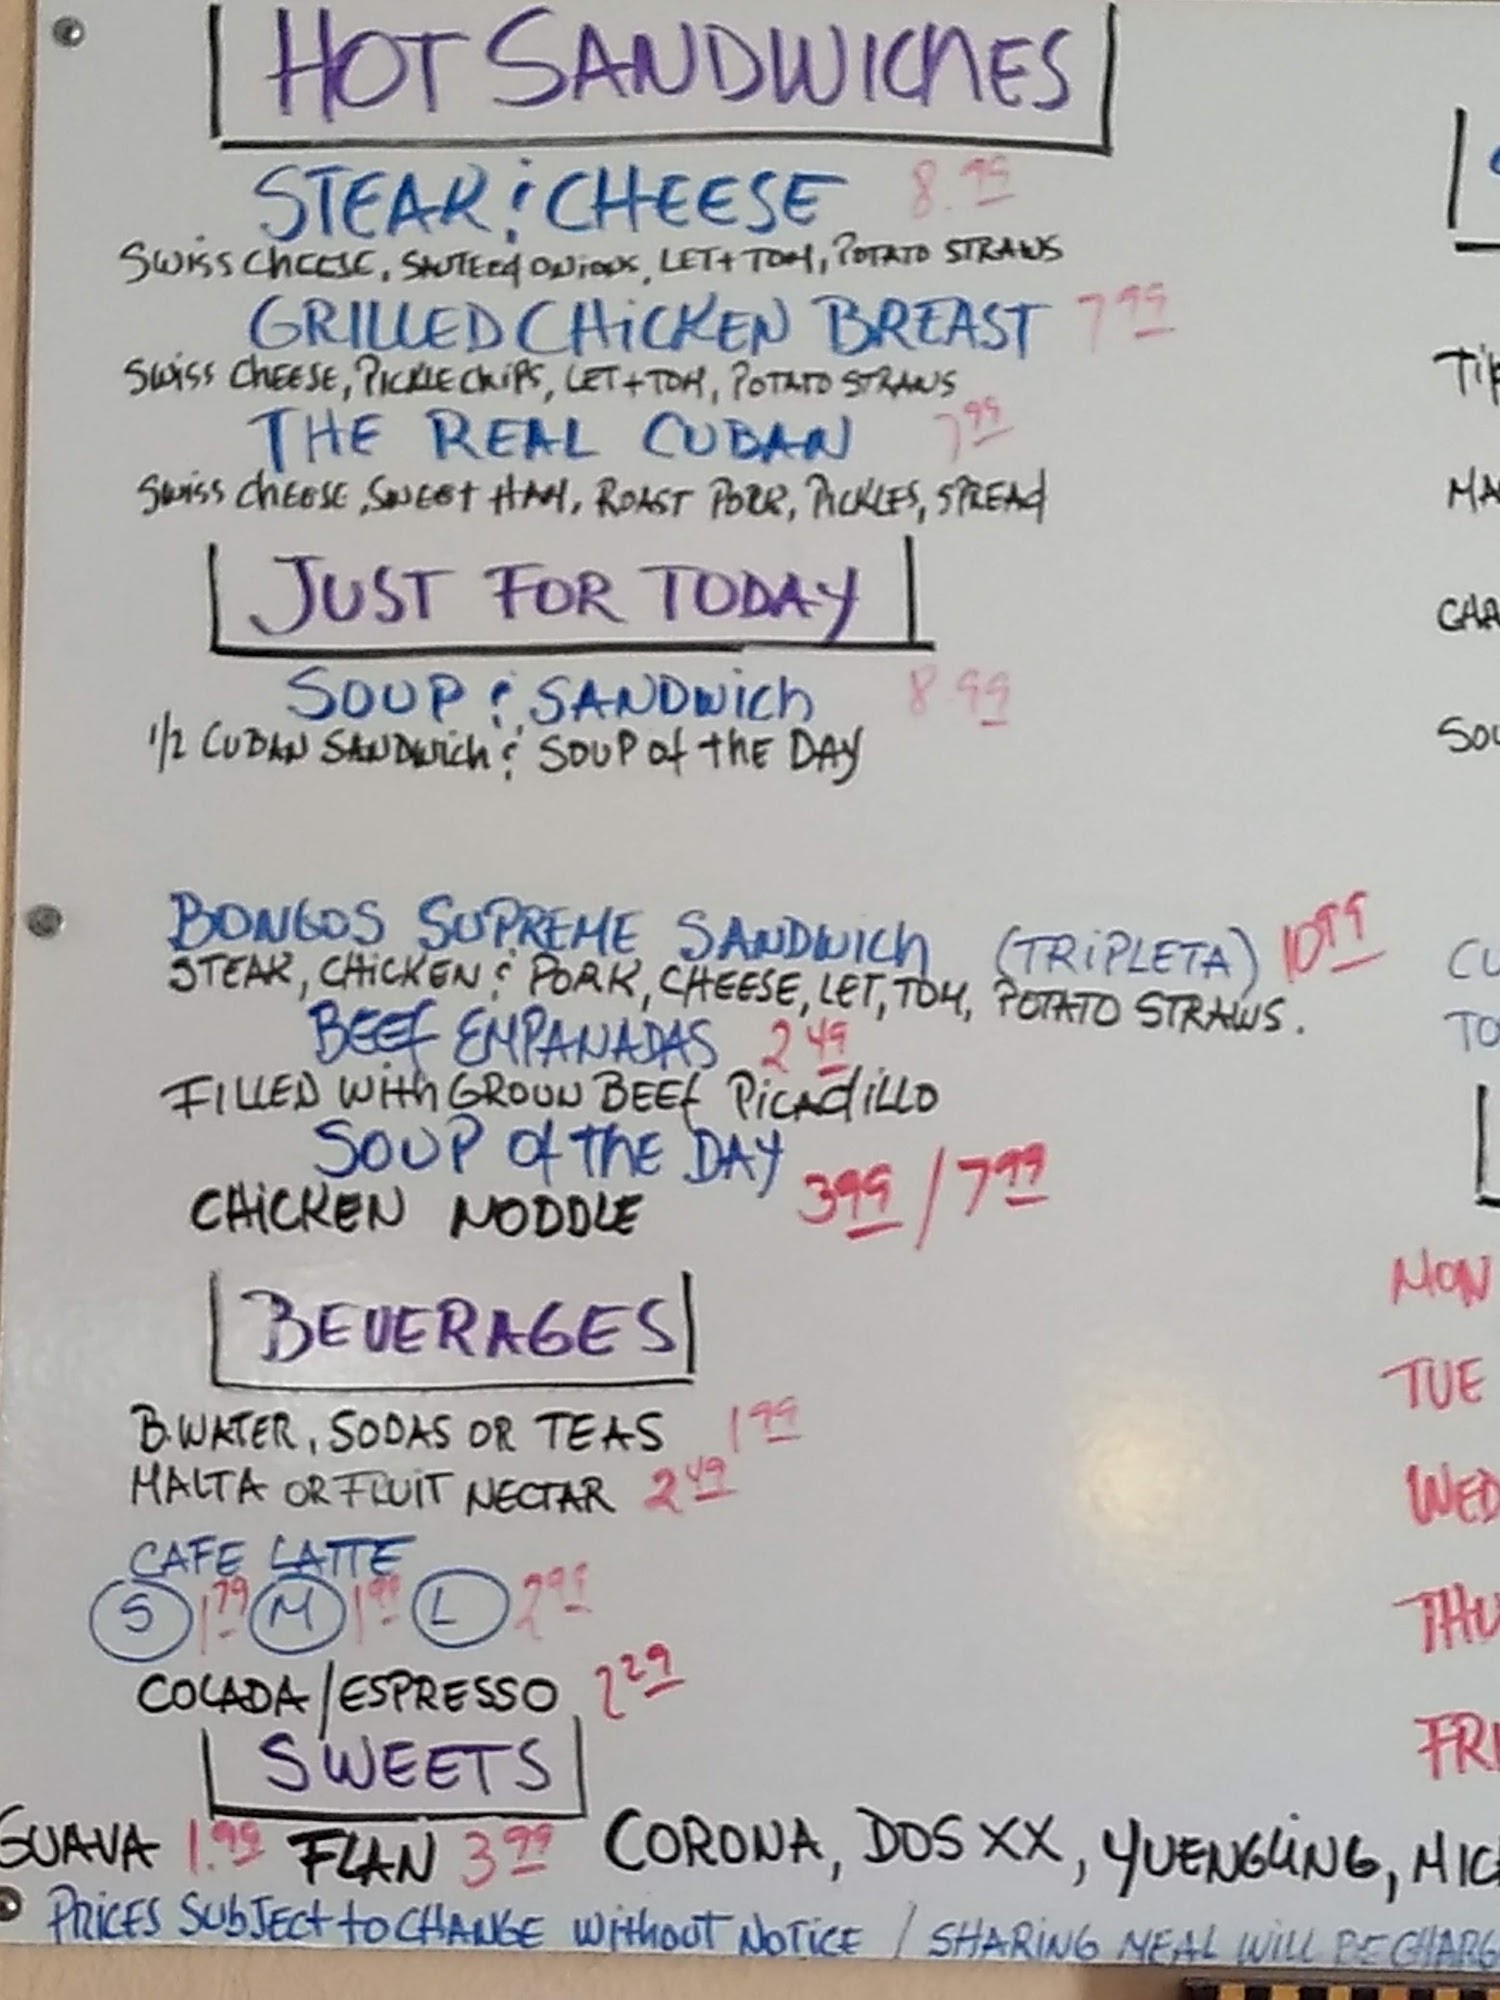 HOT SANDWICHES
STEAK & CHEESE 8.99
SWISS CHEESE, SAUTEED ONIONS, LET + TOM, POTATO STRAWS
GRILLED CHICKEN BREAST 7 99
SWISS CHEESE, PICKLE CHIPS, LET + TOM, POTATO STRAWS
THE REAL CUBAN 7 99
SWISS CHEESE, SWEET HAM, ROAST PORK, PICKLES, SPREAD
JUST FOR TODAY
SOUP & SANDWICH 8.99
1/2 CUBAN SANDWICH & SOUP OF THE DAY
BONGOS SUPREME SANDWICH (TRIPLETA) 10 99
STEAK, CHICKEN & PORK, CHEESE, LET, TOM, POTATO STRAWS.
BEEF EMPANADAS 2 49
FILLED WITH GROUN BEEF PICADILLO
SOUP OF THE DAY
CHICKEN NODDLE 3 99 / 7 99
BEVERAGES
B.WATER, SODAS OR TEAS 1 99
MALTA OR FRUIT NECTAR 2 49
CAFE LATTE
S 1 79 M 1 99 L 2 99
COLADA/ESPRESSO 2 29
SWEETS
GUAVA 1.99 FLAN 3 99 CORONA, DOS XX, YUENGLING, MIC
PRICES SUBJECT TO CHANGE WITHOUT NOTICE / SHARING MEAL WILL BE CHARG
TIP
MA
CHA
SOU
CU
TO
MON
TUE
WED
THU
FRI